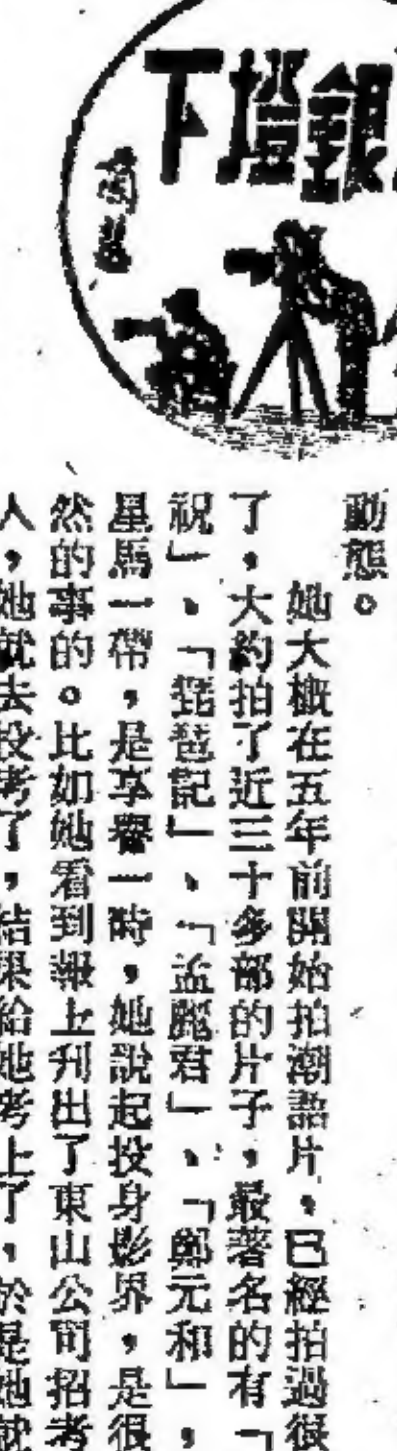 下燈銀
動態。
她大概在五年前開始拍潮語片，已經拍過很
了，大約拍了近三十多部的片子，最著名的有「
祝」、「琵琶記」、「孟麗君」、「鄭元和」，
星馬一帶，是享譽一時，她說起投身影界，是很
然的事的。比如她看到報上刋出了東山公司招考
人，她就去投考了，結果給她考上了，於是她就